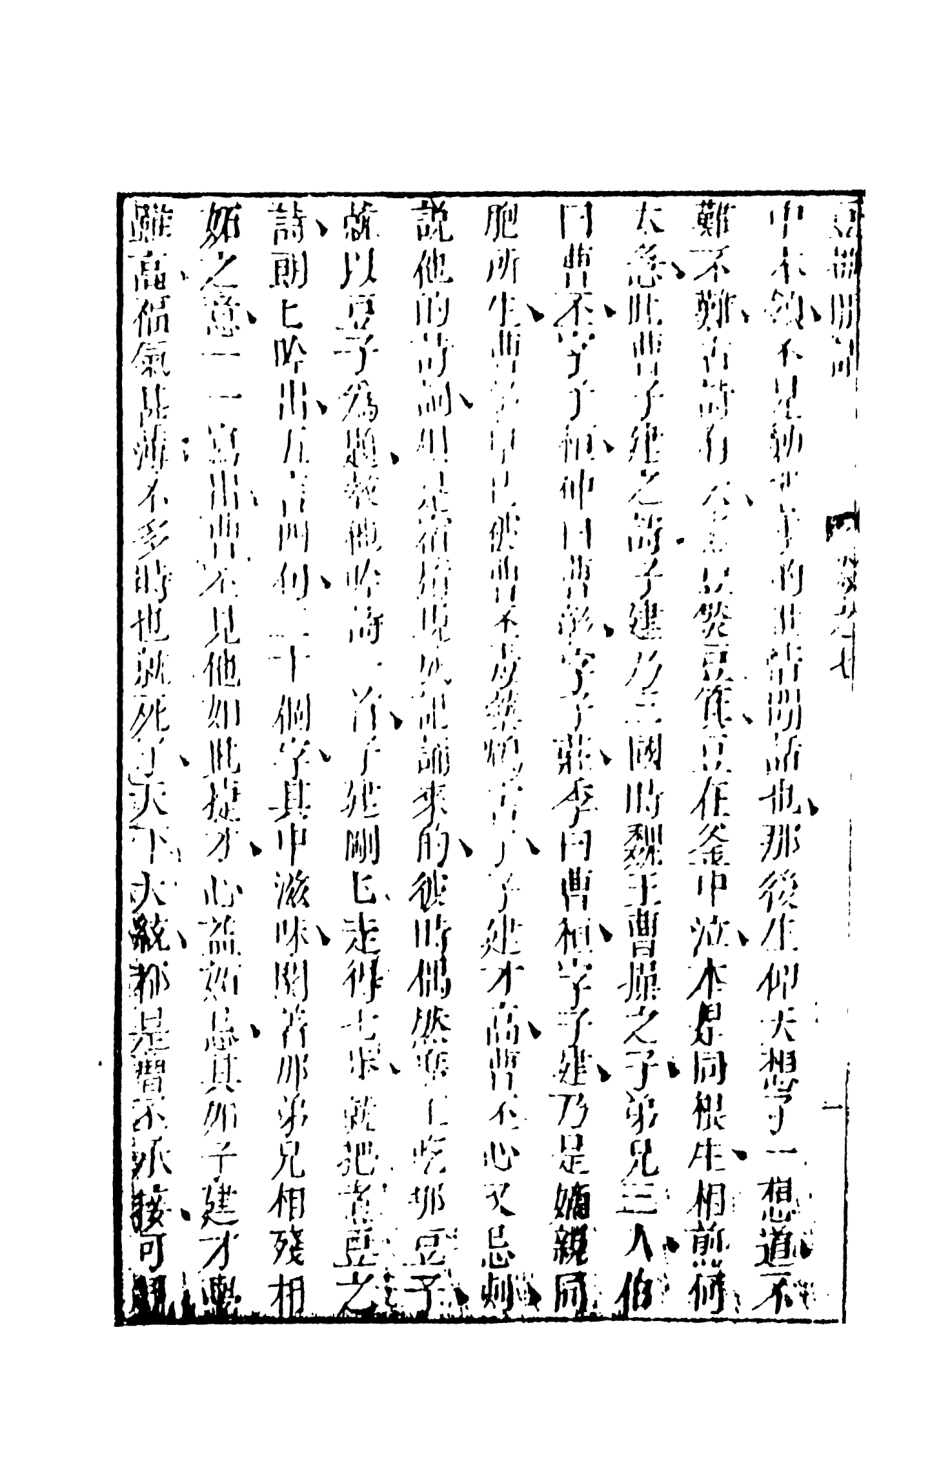 豆棚閒話
中木領不見勅起的世情閒話也那後生仰天想了一想道不
難不難古詩有云煮豆燃豆箕豆在釜中泣本是同根生相煎何
太急此曹子建之詩子建乃三國時魏王曹操之子弟兄三人伯
曰曹丕字子桓仲曰曹彰字子莊季曰曹植字子建乃是嫡親同
胞所生曹彰早已被曹丕毒藥鴆害了子建才高曹丕心又忌刻
說他的詩詞俱是宿搆現成記誦來的彼時偶然席上吃那豆子
就以豆子爲題敎他吟詩一首子建剛剛走得七步就把煮豆之
詩朗朗吟出五言四句二十個字其中滋味關着那弟兄相殘相
妬之意一一寫出曹丕見他如此捷才心益妬忌其如子建才學
雖高福氣甚薄不多時也就死了天下大統都是曹丕承接可